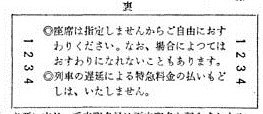 裏
◎座席は指定しませんからご自由におす
わりください。なお、場合によつては
おすわりになれないこともあります。
◎列車の遅延による特急料金の払いも
どしは、いたしません。
1234
1234